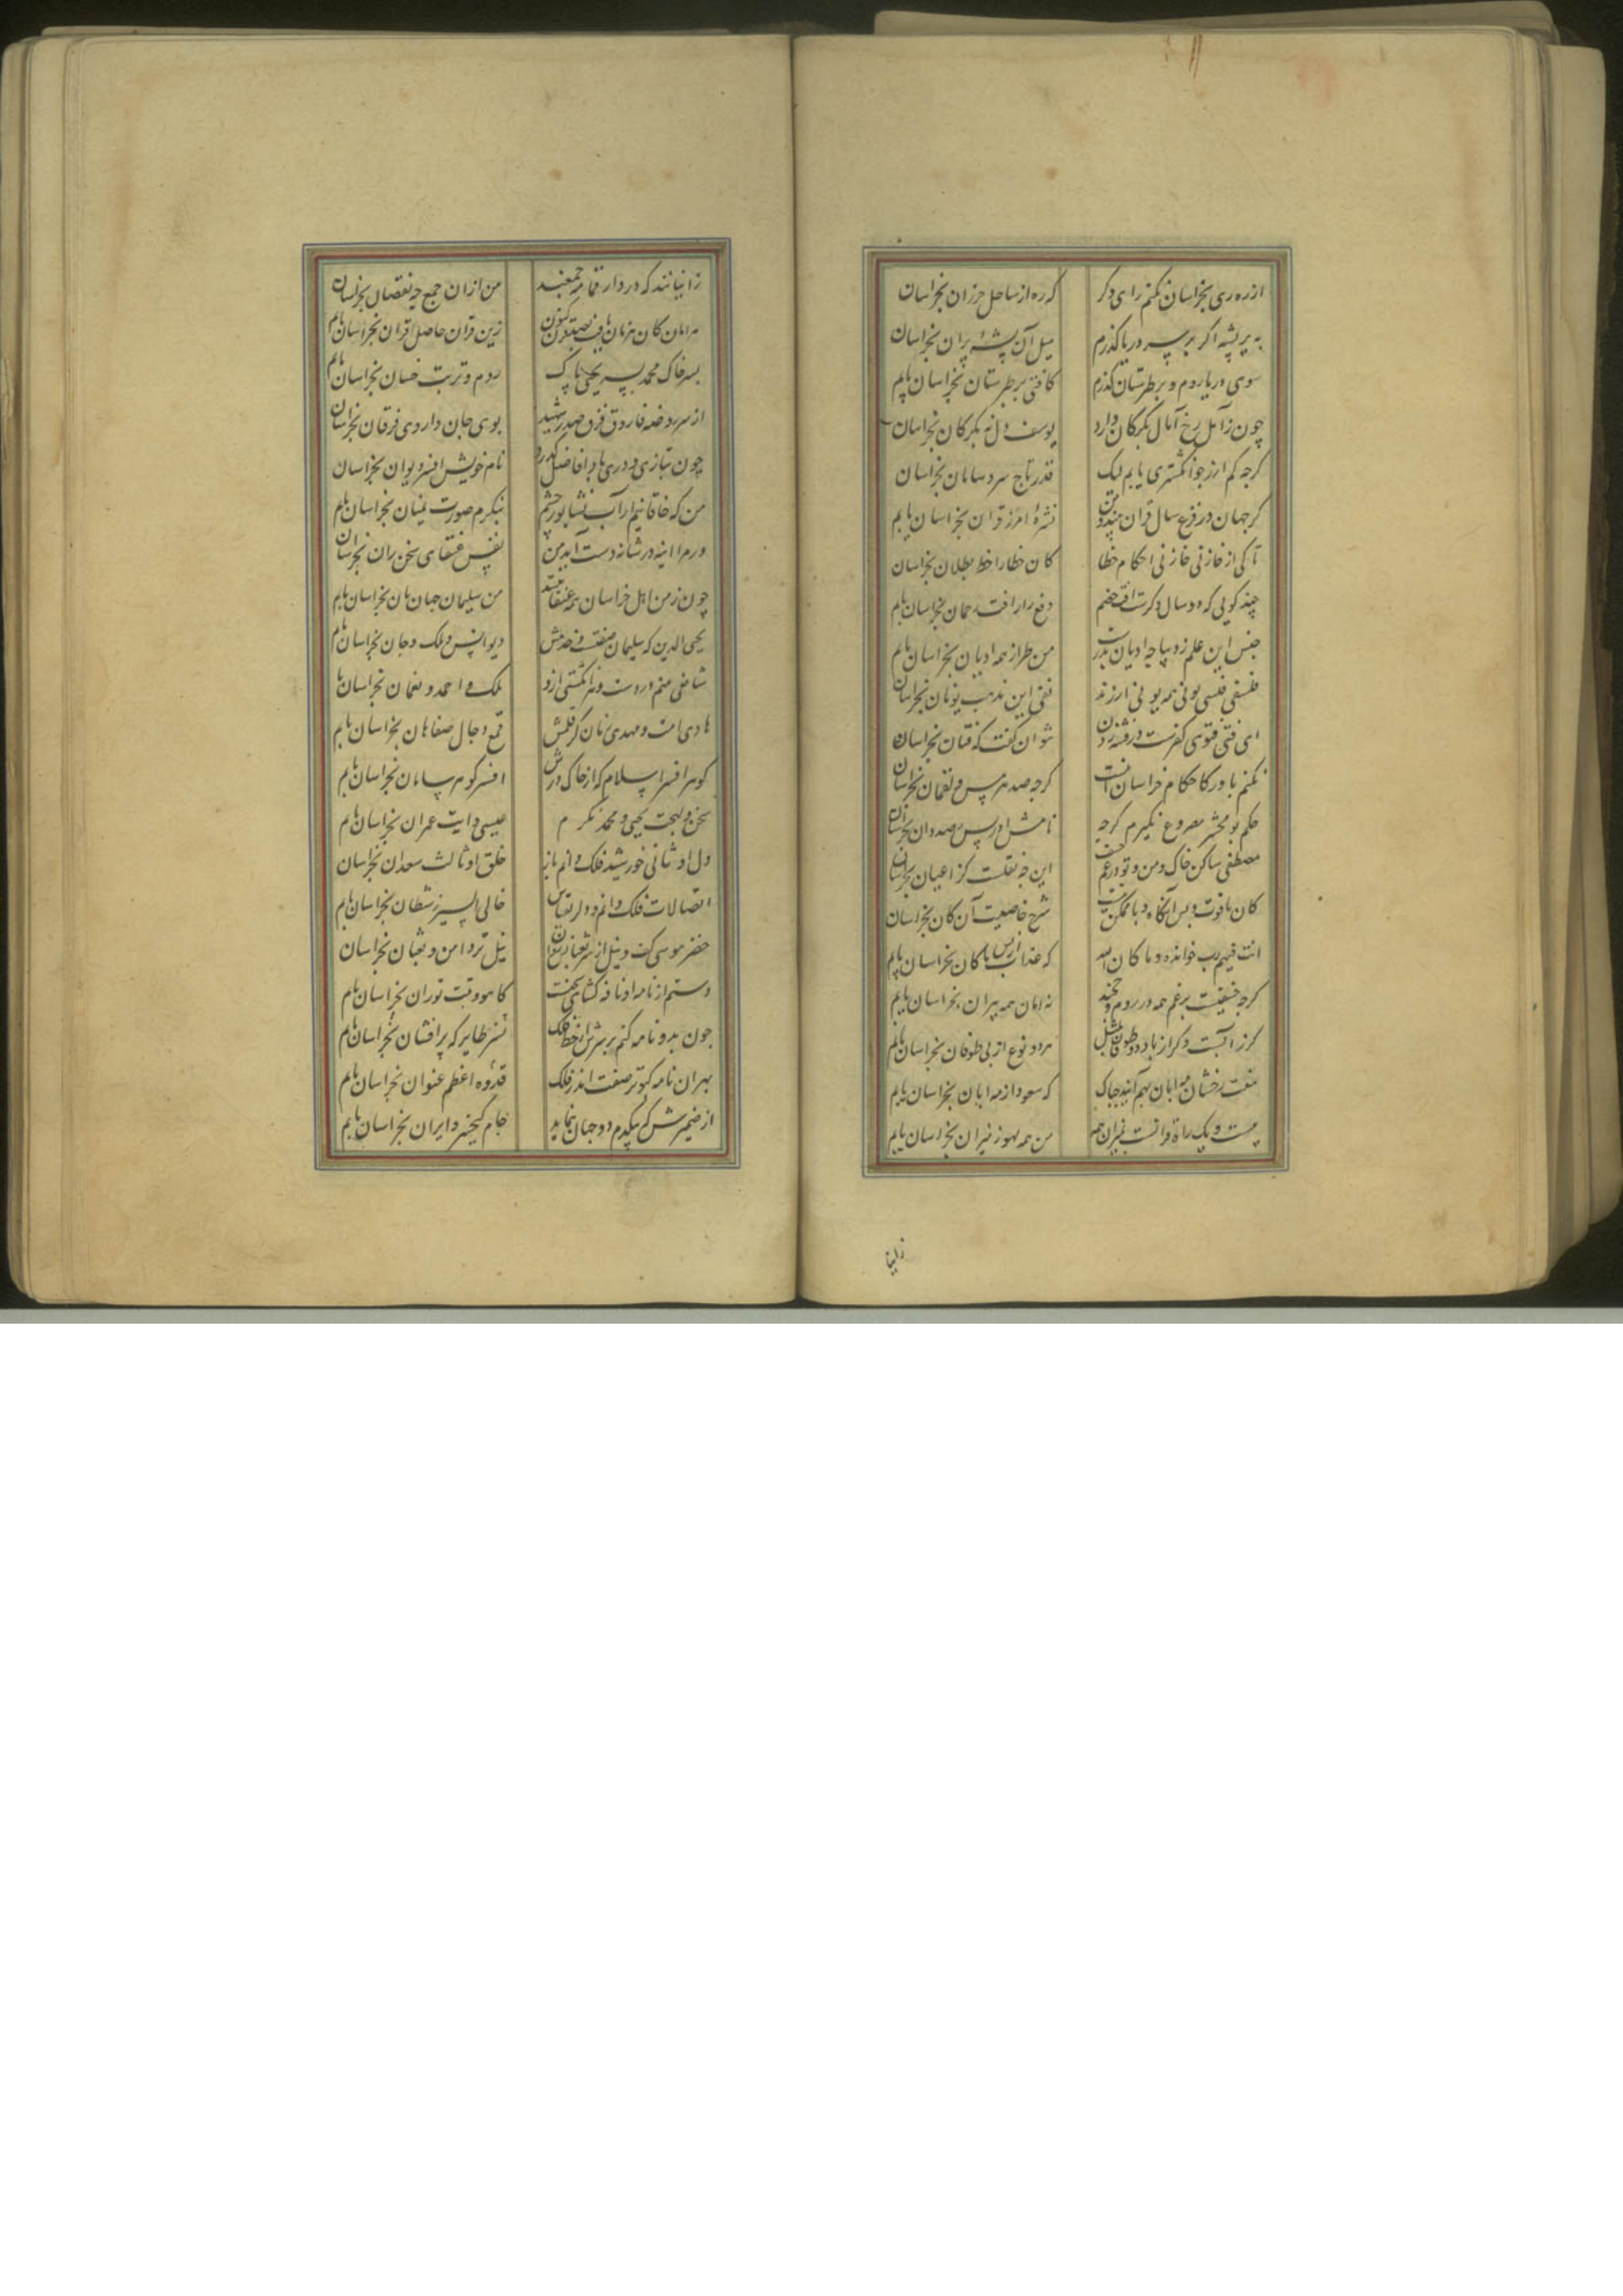 از ره ری بخراسان نکنم رای دگر
که ره از ساحل خزران بخراسان
به پر پشه اگر بر سر دریا گذرم
میل آن پشه پران بخراسان
سوی دریا روم و بر طبرستان گذرم
کافتی بر طبرستان بخراسان یابم
چون ز آمل رخ آمال بگرگان دارد
یوسف دل نه بگرگان بخراسان
گرچه کم ارز چو انگشتری یابم لیک
قدر تاج سر ساسان بخراسان
گر جهان در فزع سال قران
نشرهٔ امن ز قران بخراسان یابم
تا کی از خازنی خازنی احکام خطا
کان خطا را خط بطلان بخراسان
چند گویی که دو سال دگرست آفت خصم
دفع را رافت رحمان بخراسان یابم
جنس این علم ز دیباچه ادیان بدرست
من طراز همه ادیان بخراسان یابم
فلسفی فلسی یونی همه یونی ارزند
نفی این مذهب یونان بخراسان
ای فتی فتوی کفرست
نتوان گفت که فتان بخراسان
نکنم باور کاحکام خراسان اینست
گرچه صد هرمس و لقمان بخراسان
حکم بومعشر مصروع نگیرم گرچه
نامش ادریس رصددان بخراسان
مصطفی ساکن خاک و من و تو در غم خسف
این چه نقلست کز اعیان بخراسان
کان یاقوت و پس آنگاه وبا ممکن نیست
شرح خاصیت آن کان بخراسان
انت فیهم رب خوانده و ما کان الله
که عذاب ارپس ما کان بخراسان یابم
گرچه خسفیست بزعم همه در روم و خجند
نه امان همه پیران بخراسان یابم
گر ز آبست و گر از باد دو طوفان
هر دو نوع از پی طوفان بخراسان یابم
هفت رخشان مه آبان بهم آیند چه باک
که سعود از مه آبان بخراسان یابم
بیست و یک را قرانست بمیزان همه
من همه لهو ز میزان بخراسان یابم
زانیا
زانیانند که در دار قمامه جمعند
من از آن جمع چه نقصان بخراسان
مه آبان کان بزمان
زین قران حاصل اقران بخراسان یابم
بسر خاک محمد پسر یحیی پاک
روم و تربت حسان بخراسان یابم
از سر روضه فاروق فرق صدر شهید
بوی جان داروی فرقان بخراسان
چون بتازی و دری یاد افاضل گذرد
نام خویش افسر دیوان بخراسان
من که خاقانیم ار آب نشابور چشم
بنگرم صورت یمنان بخراسان یابم
ور مرا آینه در شانه دست آید من
نفس عنقای سخن ران بخراسان
چون ز من اهل خراسان همه عنقا بینند
من سلیمان جهانبان بخراسان یابم
محیی الدین که سلیمان صفتست و خدمش
دیو انس و ملک و جان بخراسان یابم
شافعی بینم در دست و هر انگشتی ازو
ملک و احمد و نعمان بخراسان یابم
هادی امت و مهدی زمان کز قلمش
قمع دجال صفاهان بخراسان یابم
گوهر افسر اسلام که از خاک درش
افسر گوهر ساسان بخراسان یابم
سخن و لهجت یحیی و محمد نگرم
عیسی و آیت عمران بخراسان یابم
دل او ثانی خورشید فلک دانم باز
خلق او ثالث سعدان بخراسان
اتصالات فلک دانم و دل را بقیاس
خالی السیر ز شیطان بخراسان یابم
خضر موسی کف و نیل از سر ثعبان
نیل تردامن و ثعبان بخراسان
دستم از نامه او نافه گشای سخنست
کاهو و تبت توران بخراسان یابم
چون بدو نامه کنم بر سرش از خط فلک
نسر طایر که پر افشان بخراسان یابم
بهر آن نامه کبوتر صفت اندر فلک
قدوه اعظم عنوان بخراسان یابم
از ضمیرش که بیکدم دو جهان بنماید
جام کیخسرو ایران بخراسان یابم